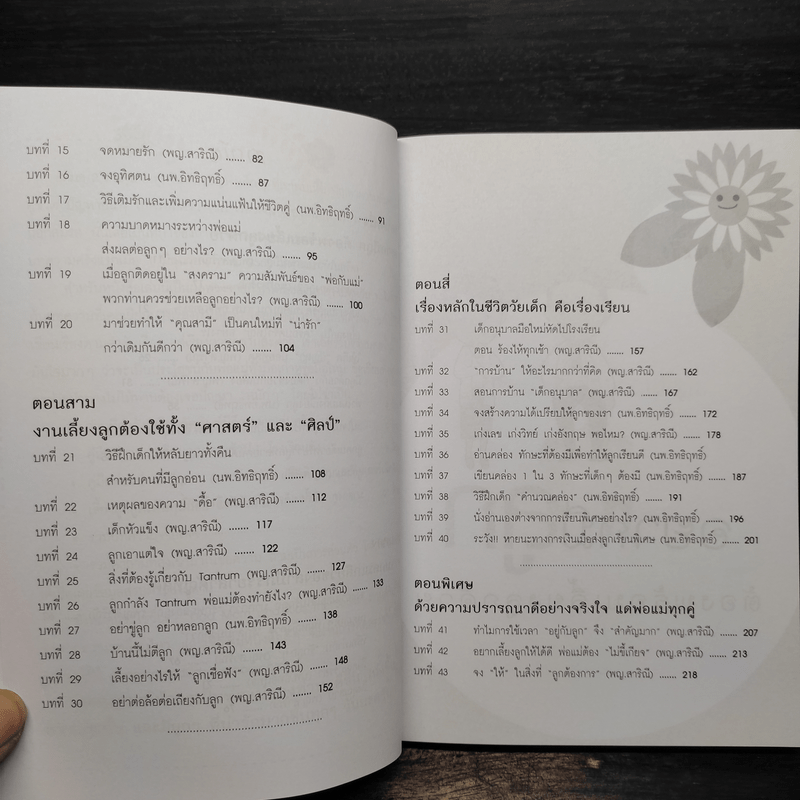 บทที่ 15 จดหมายรัก (พญ.สาริณี) ....... 82
บทที่ 16 จงอุทิศตน (นพ.อิทธิฤทธิ์) ....... 87
บทที่ 17 วิธีเติมรักและเพิ่มความแน่นแฟ้นให้ชีวิตคู่ (นพ.อิทธิฤทธิ์) ....... 91
บทที่ 18 ความบาดหมางระหว่างพ่อแม่
ส่งผลต่อลูกๆ อย่างไร? (พญ.สาริณี) ....... 95
บทที่ 19 เมื่อลูกติดอยู่ใน "สงคราม" ความสัมพันธ์ของ "พ่อกับแม่"
พวกท่านควรช่วยเหลือลูกอย่างไร? (พญ.สาริณี) ....... 100
บทที่ 20 มาช่วยทำให้ "คุณสามี" เป็นคนใหม่ที่ "น่ารัก"
กว่าเดิมกันดีกว่า (พญ.สาริณี) ....... 104
ตอนสาม
งานเลี้ยงลูกต้องใช้ทั้ง "ศาสตร์" และ "ศิลป์"
บทที่ 21 วิธีฝึกเด็กให้หลับยาวทั้งคืน
สำหรับคนที่มีลูกอ่อน (นพ.อิทธิฤทธิ์) ....... 108
บทที่ 22 เหตุผลของความ "ดื้อ" (พญ.สาริณี) ....... 112
บทที่ 23 เด็กหัวแข็ง (พญ.สาริณี) ....... 117
บทที่ 24 ลูกเอาแต่ใจ (พญ.สาริณี) ....... 122
บทที่ 25 สิ่งที่ต้องรู้เกี่ยวกับ Tantrum (พญ.สาริณี) ....... 127
บทที่ 26 ลูกกำลัง Tantrum พ่อแม่ต้องทำยังไง? (พญ.สาริณี) ....... 133
บทที่ 27 อย่าขู่ลูก อย่าหลอกลูก (นพ.อิทธิฤทธิ์) ....... 138
บทที่ 28 บ้านนี้ไม่ตีลูก (พญ.สาริณี) ....... 143
บทที่ 29 เลี้ยงอย่างไรให้ "ลูกเชื่อฟัง" (พญ.สาริณี) ....... 148
บทที่ 30 อย่าต่อล้อต่อเถียงกับลูก (พญ.สาริณี) ....... 152
ตอนสี่
เรื่องหลักในชีวิตวัยเด็ก คือเรื่องเรียน
บทที่ 31 เด็กอนุบาลมือใหม่หัดไปโรงเรียน
ตอน ร้องไห้ทุกเช้า (พญ.สาริณี) ....... 157
บทที่ 32 "การบ้าน" ให้อะไรมากกว่าที่คิด (พญ.สาริณี) ....... 162
บทที่ 33 สอนการบ้าน "เด็กอนุบาล" (พญ.สาริณี) ....... 167
บทที่ 34 จงสร้างความได้เปรียบให้ลูกของเรา (นพ.อิทธิฤทธิ์) ....... 172
บทที่ 35 เก่งเลข เก่งวิทย์ เก่งอังกฤษ พอไหม? (พญ.สาริณี) ....... 178
บทที่ 36 อ่านคล่อง ทักษะที่ต้องมีเพื่อทำให้ลูกเรียนดี (นพ.อิทธิฤทธิ์)
บทที่ 37 เขียนคล่อง 1 ใน 3 ทักษะที่เด็กๆ ต้องมี (นพ.อิทธิฤทธิ์) ....... 187
บทที่ 38 วิธีฝึกเด็ก "คำนวณคล่อง" (นพ.อิทธิฤทธิ์) ....... 191
บทที่ 39 นั่งอ่านเองต่างจากการเรียนพิเศษอย่างไร? (นพ.อิทธิฤทธิ์) ....... 196
บทที่ 40 ระวัง!! หายนะทางการเงินเมื่อส่งลูกเรียนพิเศษ (นพ.อิทธิฤทธิ์) ....... 201
ตอนพิเศษ
ด้วยความปรารถนาดีอย่างจริงใจ แด่พ่อแม่ทุกคู่
บทที่ 41 ทำไมการใช้เวลา "อยู่กับลูก" จึง "สำคัญมาก" (พญ.สาริณี) ....... 207
บทที่ 42 อยากเลี้ยงลูกให้ได้ดี พ่อแม่ต้อง "ไม่ขี้เกียจ" (พญ.สาริณี) ....... 213
บทที่ 43 จง "ให้" ในสิ่งที่ "ลูกต้องการ" (พญ.สาริณี) ....... 218